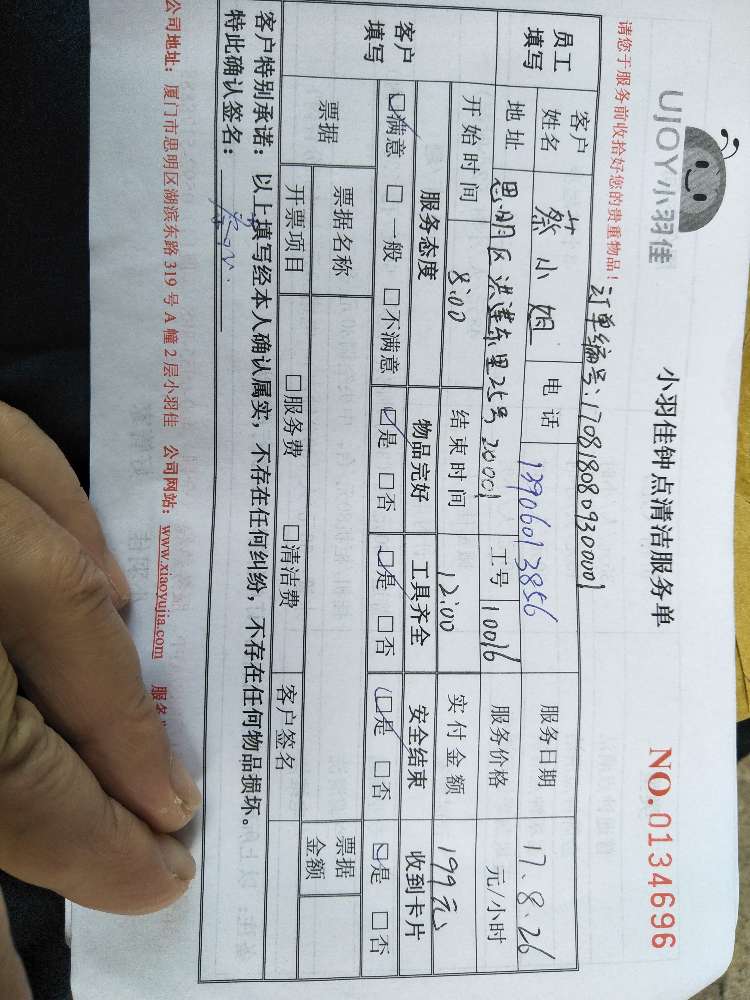 UJOY小羽佳
小羽佳钟点清洁服务单
NO.0134696
请您于服务前收拾好您的贵重物品!
订单编号:170818080930001
员工填写 客户姓名 蔡小姐 电话 13906013856 服务日期 17.8.26
地址 思明区洪莲东里25号2000 工号 10016 服务价格 元/小时
开始时间 8:00 结束时间 12:00 实付金额 199元
客户填写 服务态度 物品完好 工具齐全 安全结束 收到卡片
☑满意 □一般 □不满意 ☑是 □否 ☑是 □否 ☑是 □否 ☑是 □否
票据 票据名称 票据金额
开票项目 □服务费 □清洁费 客户签名
客户特别承诺:以上填写经本人确认属实,不存在任何纠纷,不存在任何物品损坏。
特此确认签名:
公司地址:厦门市思明区湖滨东路319号A幢2层小羽佳 公司网站:www.xiaoyujia.com 服务